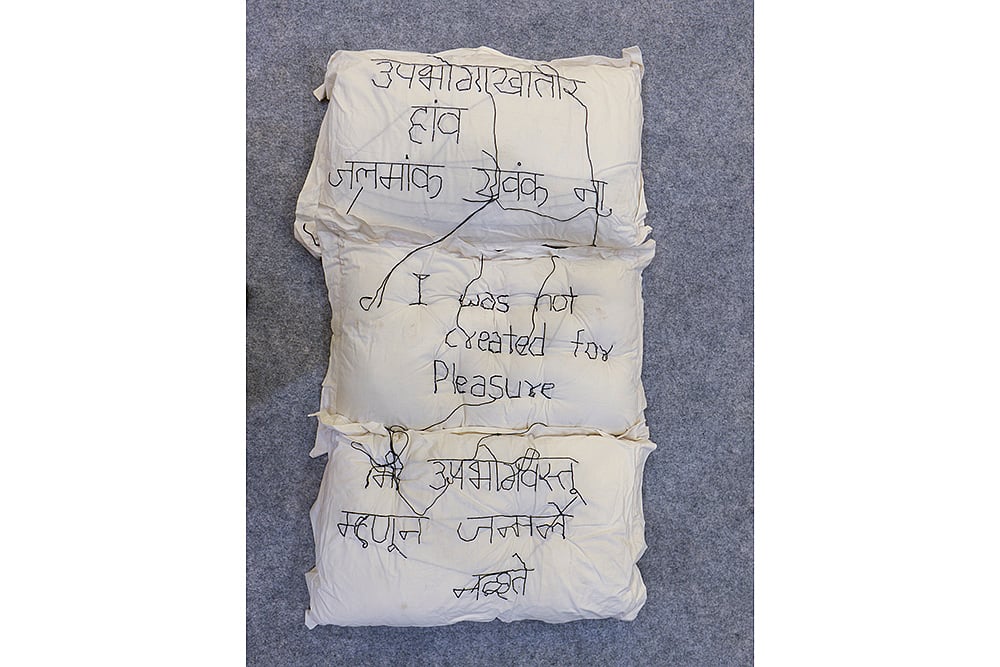 उपभोगाखातीर
हांव
जल्मांक येवंक ना
I was not
created for
Pleasure
मी उपभोगवस्तू
म्हणून जन्मले
नव्हते